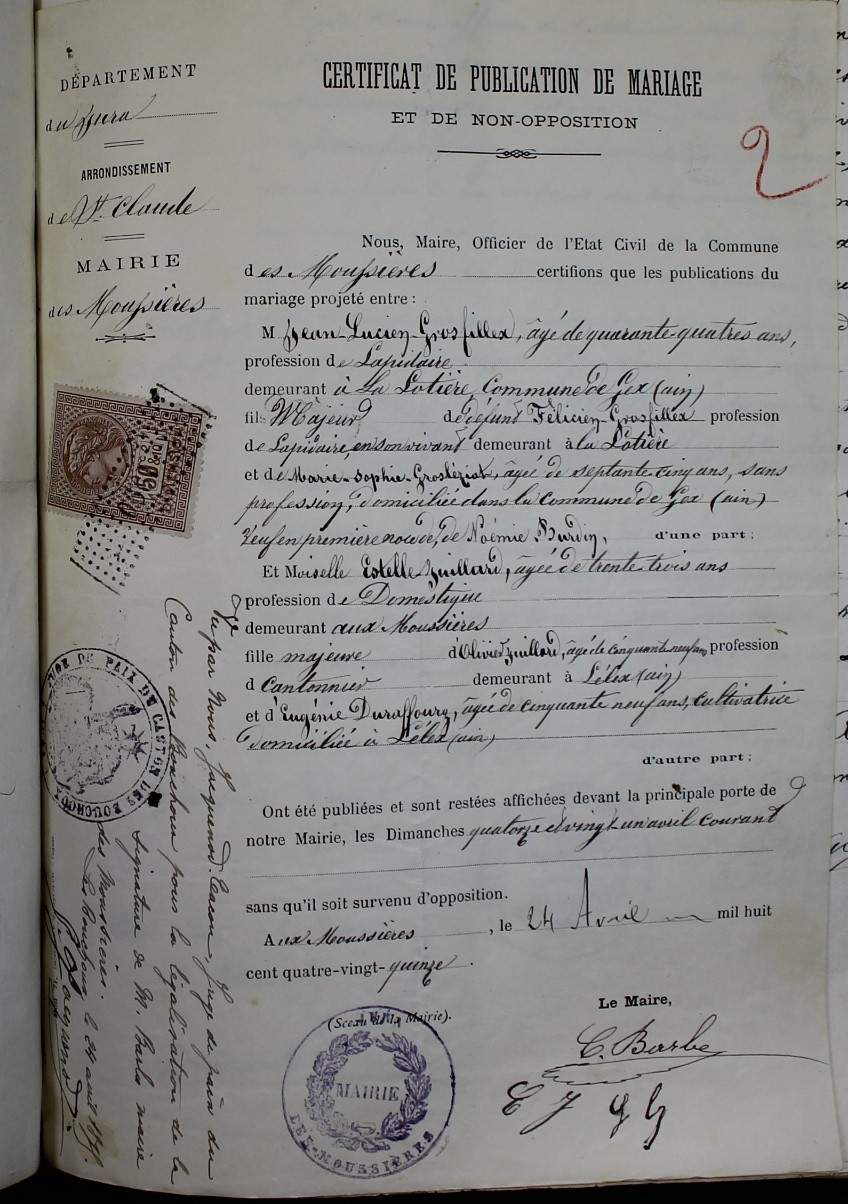 DÉPARTEMENT
du Jura
ARRONDISSEMENT
de St. Claude
MAIRIE
des Moussières
CERTIFICAT DE PUBLICATION DE MARIAGE
ET DE NON-OPPOSITION
2
Nous, Maire, Officier de l'Etat Civil de la Commune
des Moussières certifions que les publications du
mariage projeté entre :
M Jean-Lucien-Grosfillex, âgé de quarante quatres ans,
profession de Lapidaire
demeurant à La Lotière, Commune de Gex (ain)
fils Majeur de défunt Félicien Grosfillex profession
de Lapidaire, en son vivant demeurant à la Lotière
et de Marie-Sophie-Grosléziat, agée de septante cinq ans, sans
profession, domiciliée dans la commune de Gex (ain)
Veuf en première noce de, de Noémie Burdin, d'une part ;
Et Moiselle Estelle Juillard, agée de trente trois ans
profession de Domestique
demeurant aux Moussières
fille majeure d'Olivier Juillard, âgé de cinquante neuf ans profession
d Cantonnier demeurant à Lélex (ain)
et d'Eugénie Duraffourg, agée de cinquante neuf ans, cultivatrice
domiciliée à Lélex (ain)
d'autre part ;
Ont été publiées et sont restées affichées devant la principale porte de
notre Mairie, les Dimanches quatorze et vingt-un avril courant
sans qu'il soit survenu d'opposition.
Aux Moussières, le 24 Avril mil huit
cent quatre-vingt-quinze.
Le Maire,
(Sceau de la Mairie).
C. Barbe
E J G G
MAIRIE
LES-MOUSSIÈRES
DE PAIX DE CANTON DES BOUCHOUX
Vu par Nous, Juge de paix du
Canton des Bouchoux pour la légalisation de la
signature de M. Barbe maire
des Moussières.
Les Bouchoux, le 24 avril 1895.